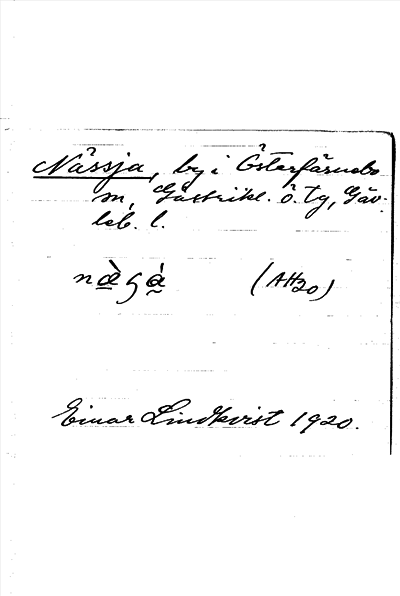 Nässja, by i Österfärnebo
sn, Gästrikl. ö. tg, Gäv-
leb. l.
næ̀ʂà (AH20)
Einar Lindkvist 1920.